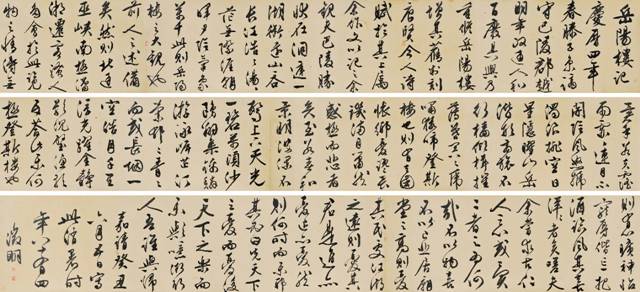 岳陽樓記
慶曆四年
春滕子京謫
守巴陵郡越
明年政通人和
百廢具興乃
重修岳陽樓
增其舊制刻
唐賢今人詩
賦於其上屬
余作文以記之予
觀夫巴陵勝
狀在洞庭一
湖銜遠山吞
長江浩浩湯湯
橫無際涯朝
暉夕陰氣象
萬千此則岳陽
樓之大觀也
前人之述備
矣然則北通
巫峽南極瀟
湘遷客騷人
多會於此覽
物之情得無
異乎若夫霪
雨霏霏連月不
開陰風怒號
濁浪排空日
星隱曜山岳
潛形商旅不
行檣傾楫摧
薄暮冥冥虎
嘯猿啼登斯
樓也則有去國
懷鄉憂讒畏
譏滿目蕭然
感極而悲者
矣至若春和
景明波瀾不
驚上下天光
一碧萬頃沙
鷗翔集錦鱗
游泳岸芷汀
蘭郁郁青青
而或長煙一
空皓月千里
浮光躍金靜
影沉璧漁歌
互答此樂何
極登斯樓也
則有心曠神怡
寵辱偕忘把
酒臨風其喜
洋洋者矣嗟夫
余嘗求古仁
人之心或異
二者之為何
哉不以物喜
不以己悲居廟
堂之高則憂
其民處江湖
之遠則憂其
君是進亦
憂退亦憂然
則何時而樂耶
其必曰先天下
之憂而憂後
天下之樂而
樂歟噫微斯
人吾誰與歸
嘉靖癸丑
六月五日寫
此
年八十有四
徵明